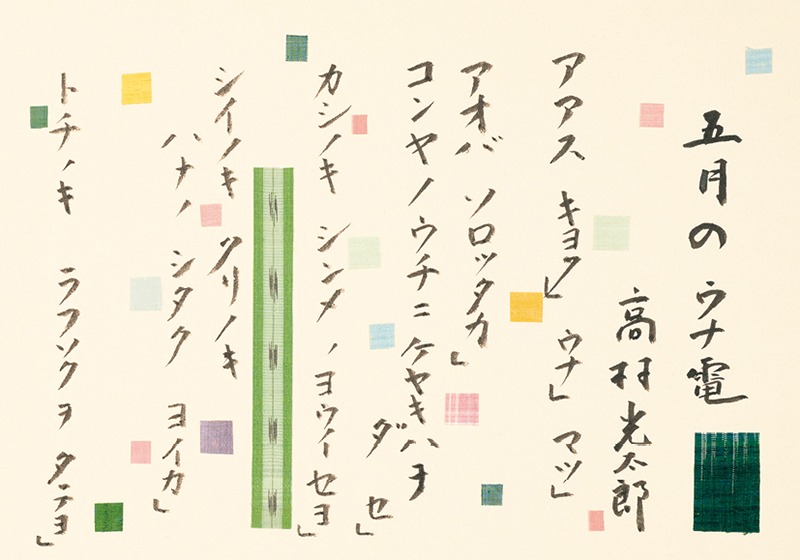 五月のウナ電
高村光太郎
アアス キヨク」 ウナ」 マツ」
アオバ ソロツタカ」
コンヤノウチニケヤキハヲ
ダセ」
カシノキ シンメノヨウイセヨ」
シイノキ クリノキ
ハナノ シタク ヨイカ」
トチノキ ラフソクヲ タテヨ」